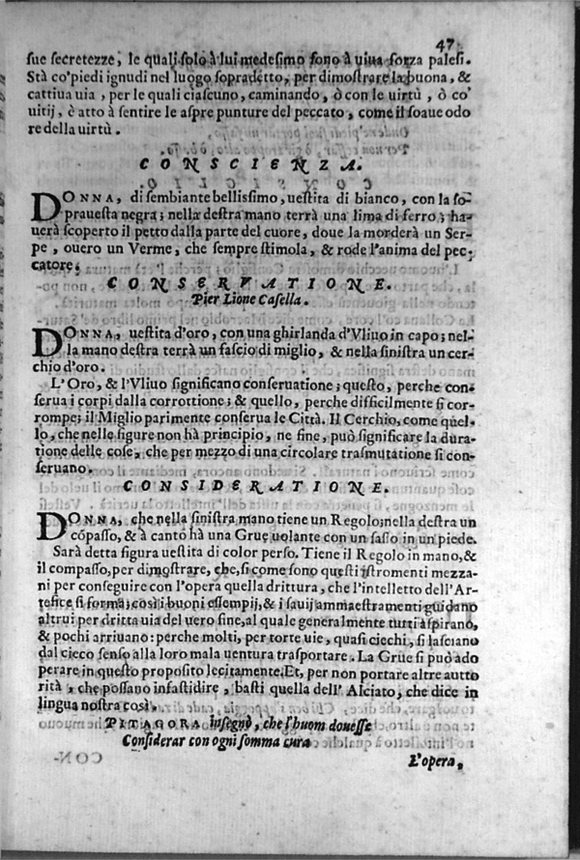 47
sue secretezze, le quali solo à lui medesimo sono à uiua forza palesi.
Stà co' piedi ignudi nel luogo sopradetto, per dimostrare la buona, &
cattiua uia, per le quali ciascuno, caminando, ò con le uirtù, ò co'
uitij, è atto à sentire le aspre punture del peccato, come il soaue odo
re della uirtù.
CONSCIENZA.
DONNA, di sembiante bellissimo, uestita di bianco, con la so-
prauesta negra; nella destra mano terrà una lima di ferro; ha-
uerà scoperto il petto dalla parte del cuore, doue la morderà un Ser-
pe, ouero un Verme, che sempre stimola, & rode l'anima del pec-
catore.
CONSERVATIONE.
Pier Lione Casella.
DONNA, uestita d'oro, con una ghirlanda d'Vliuo in capo; nel-
la mano destra terrà un fascio di miglio, & nella sinistra un cer-
chio d'oro.
L'Oro, & l'Vliuo significano conseruatione; questo, perche con-
serua i corpi dalla corrottione; & quello, perche difficilmente si cor-
rompe; il Miglio parimente conserua le Città. Il Cerchio, come quel-
lo, che nelle figure non hà principio, ne fine, può significare la dura-
tione delle cose, che per mezzo di una circolare trasmutatione si con-
seruano.
CONSIDERATIONE.
DONNA, che nella sinistra mano tiene un Regolo; nella destra un
cõpasso, & à canto hà una Grue uolante con un sasso in un piede.
Sarà detta figura uestita di color perso. Tiene il Regolo in mano, &
il compasso, per dimostrare, che, si come sono questi istromenti mezza-
ni per conseguire con l'opera quella drittura, che l'intelletto dell'Ar-
tefice si forma; così i buoni essempij, & i sauij ammaestramenti guidano
altrui per dritta uia del uero fine, al quale generalmente tutti aspirano,
& pochi arriuano: perche molti, per torte uie, quasi ciechi, si lasciano
dal cieco senso alla loro mala uentura trasportare. La Grue si può ado
perare in questo proposito lecitamente. Et, per non portare altre autto
rità, che possano infastidire, basti quella dell' Alciato, che dice in
lingua nostra così.
PITAGORA insegnò, che l'huom douesse
Considerar con ogni somma cura
L'opera,